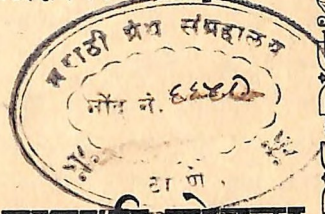 मराठी ग्रंथ संग्रहालय
नोंद नं. ६६४७
ठाणे.